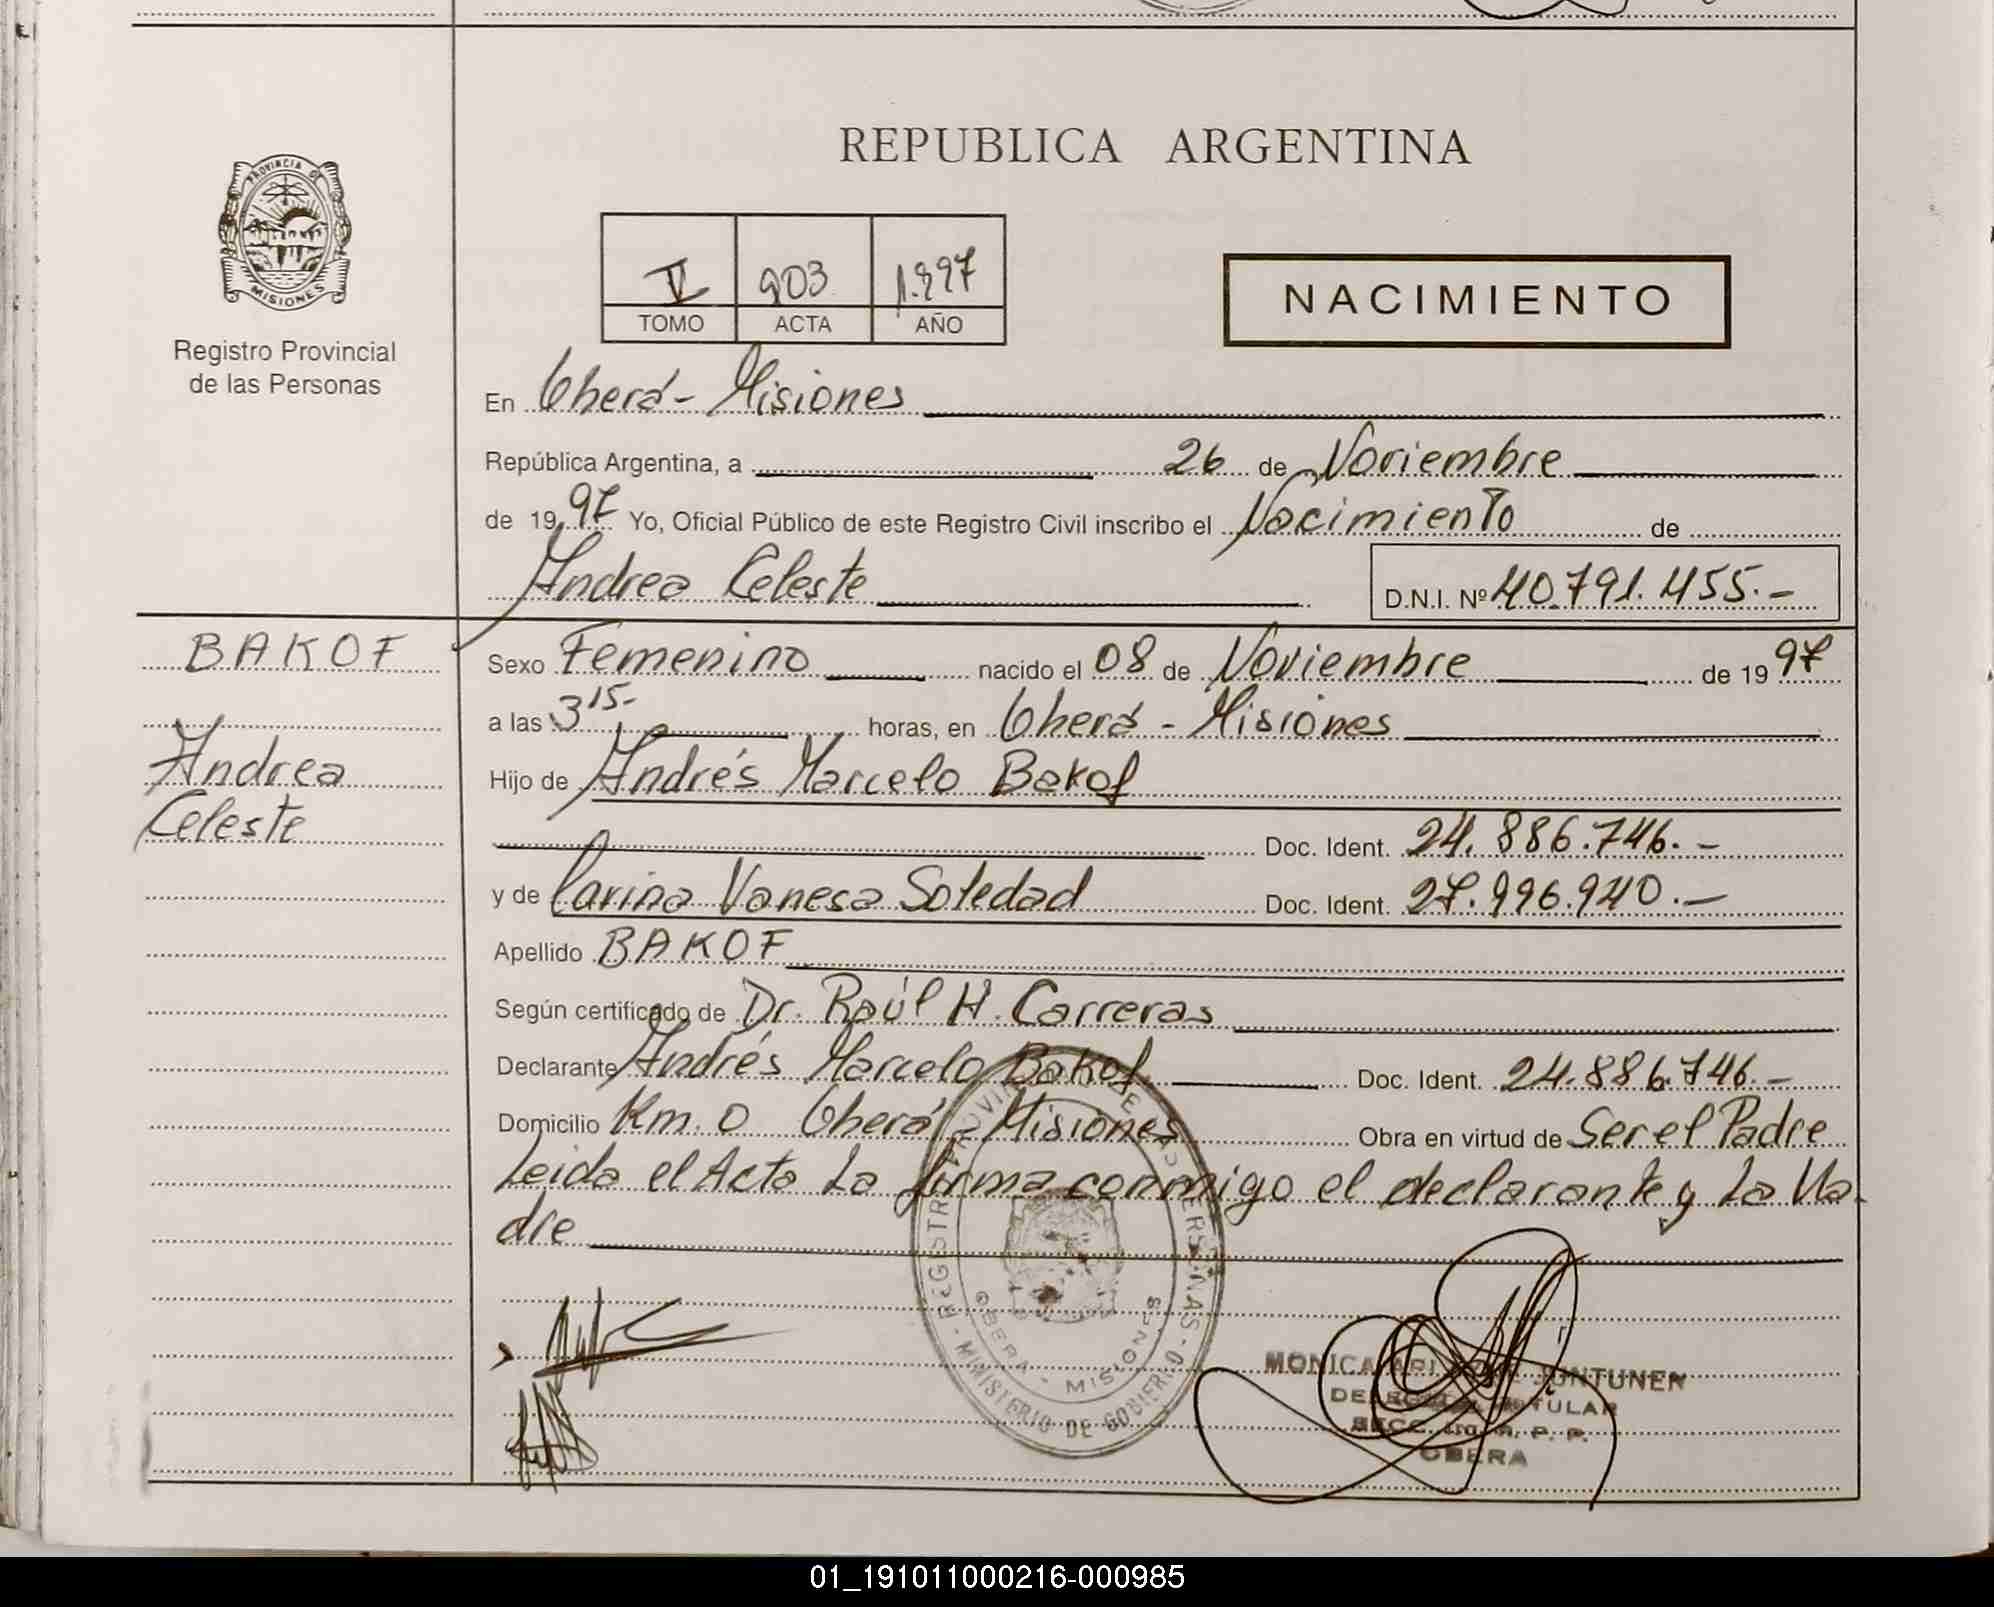 REPUBLICA ARGENTINA
PROVINCIA DE
MISIONES
Registro Provincial
de las Personas
V 903 1.997
TOMO ACTA AÑO
NACIMIENTO
En Oberá - Misiones
República Argentina, a 26 de Noviembre
de 19 97 Yo, Oficial Público de este Registro Civil inscribo el Nacimiento de
Andrea Celeste D.N.I. Nº 40.791.455.-
BAKOF
Andrea
Celeste
Sexo Femenino nacido el 08 de Noviembre de 19 97
a las 3 15- horas, en Oberá - Misiones
Hijo de Andrés Marcelo Bakof
Doc. Ident. 24.886.746.-
y de Carina Vanesa Soledad Doc. Ident. 27.996.940.-
Apellido BAKOF
Según certificado de Dr. Raúl H. Carreras
Declarante Andrés Marcelo Bakof Doc. Ident. 24.886.746.-
Domicilio Km. 0 Oberá - Misiones Obra en virtud de Ser el Padre
Leida el Acta La firma conmigo el declarante y La Ma-
dre
REGISTRO PROVINCIAL DE LAS PERSONAS
MINISTERIO DE GOBIERNO
OBERA - MISIONES
MONICA JUNTUNEN
TITULAR
SECC. 1ra. R. P. P.
OBERA
01_191011000216-000985